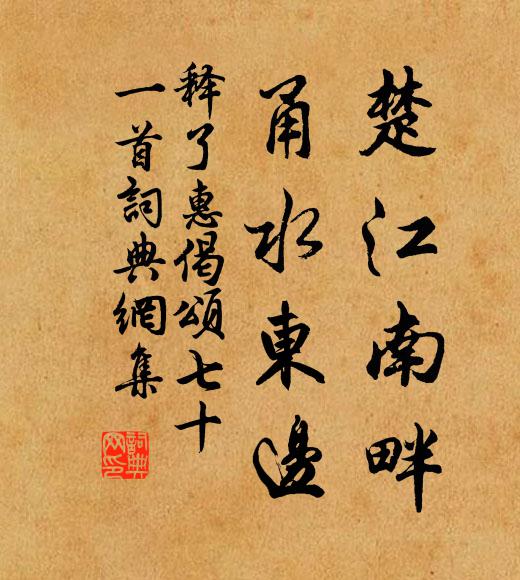 楚江南畔
甬水東邊
释了惠偈頌七十
一首詞典網集
詞典
网印